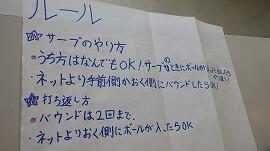 ルール
サーブのやり方
・うち方はなんでもOK!サーブのときにボールが
・ネットより手前側かおく側にバウンドしたらOK!
打ち返し方
・バウンドは2回まで。
・ネットよりおく側にボールが入ったらOK